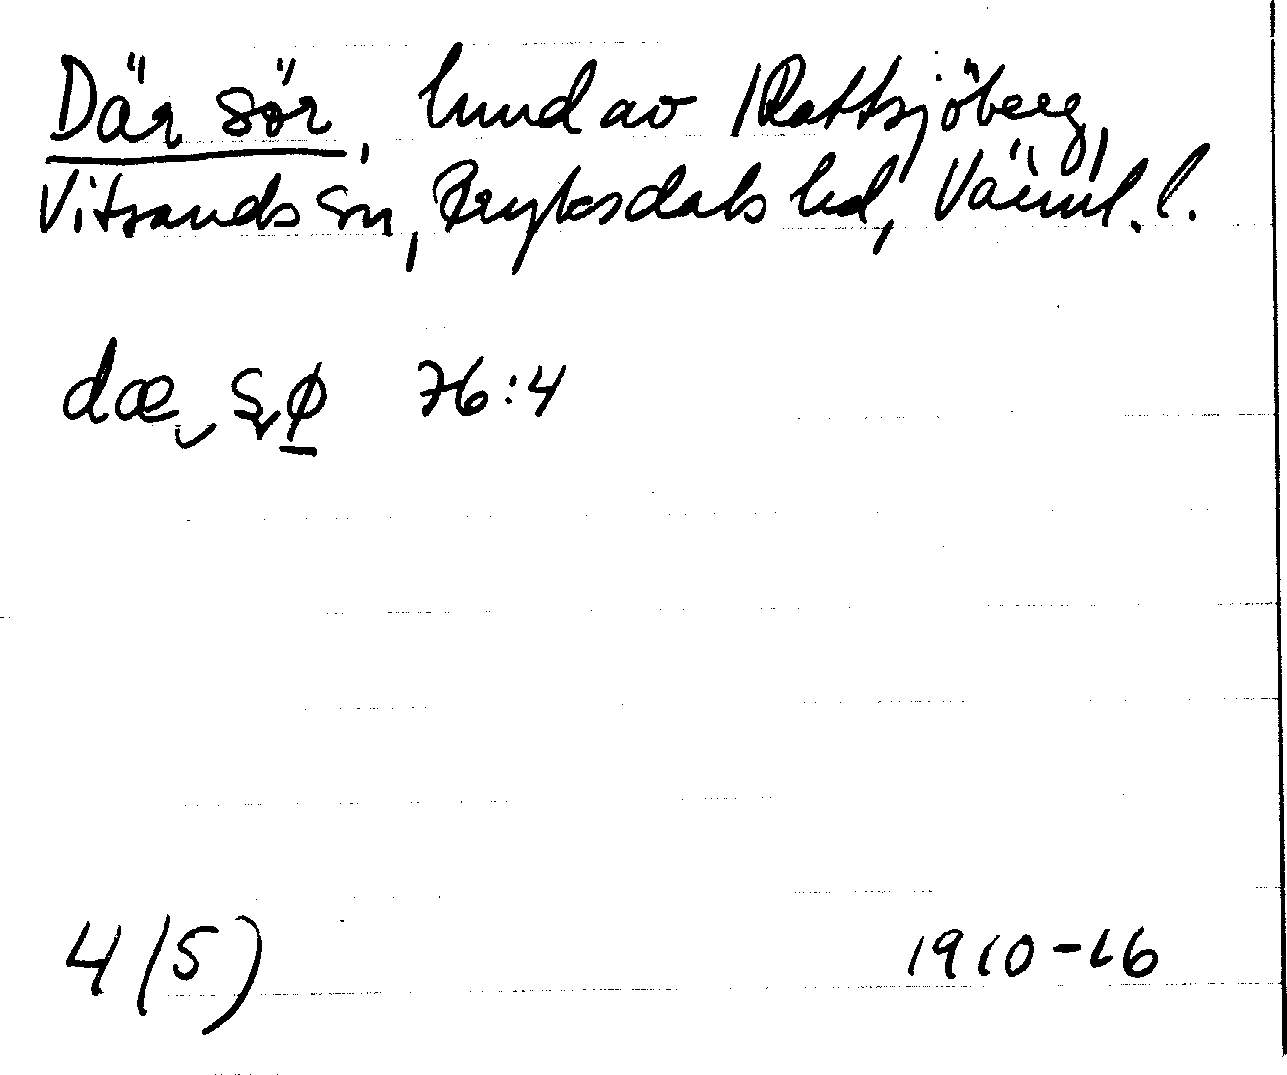 Där sör, lund av Rattsjöberg,
Vitsands sn, Fryksdals hd, Värml. l.
dæ sø 76:4
4(5) 1910-16